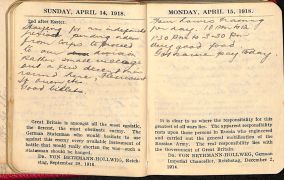 SUNDAY, APRIL 14, 1918.
2nd after Easter.
Staying for an indefinite
period
from Corps to proceed
to any division
Rather small village
and a few decent
round here,
if
Good billets.
Great Britain is amongst all the most egoistic,
the decent, the most obstinate enemy. The
German Statesman who would hesitate to use
against this enemy every available instrument of
battle that would really shorten the war—such a
statesman should be hanged.
DR. VON BETHMANN-HOLLWEG, Reich-
stag, September 28, 1916.
MONDAY, APRIL 15, 1918.
Four hours training
per day. 10
1.30 Pm to 3.30 Pm
Very good food
pay today.
It is clear to us where the responsibility for this
greatest of all wars lies. The apparent responsibility
rests upon those persons in Russia who engineered
and carried out the general mobilisation of the
Russian Army. The real responsibility lies with
the Government of Great Britain.
DR. VON BETHMANN-HOLLWEG, German
Imperial Chancellor, Reichstag, December 2,
1914.